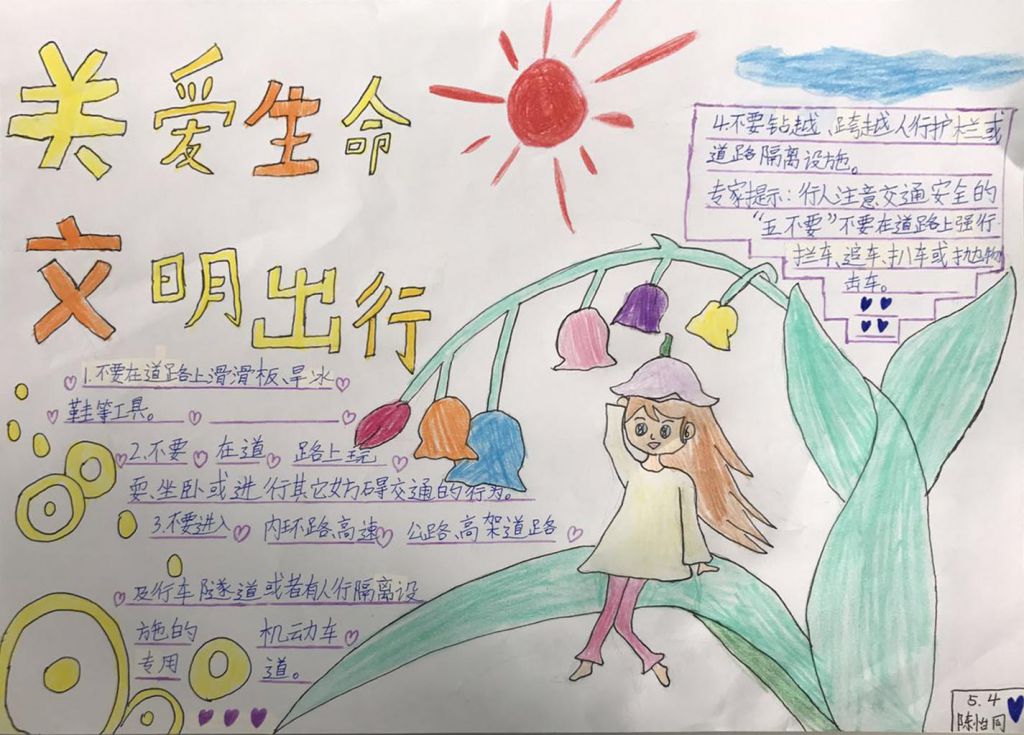 关爱生命
文明出行
1.不要在道路上滑滑板、旱冰
鞋等工具。
2.不要 在道 路上玩
耍、坐卧或进行其它妨碍交通的行为。
3.不要进入 内环路、高速 公路、高架道路
及行车隧道或者有人行隔离设
施的 机动车
专用 道。
4.不要钻越、跨越人行护栏或
道路隔离设施。
专家提示:行人注意交通安全的
“五不要”不要在道路上强行
拦车、追车、扒车或抛物
击车。
5.4
陈怡同